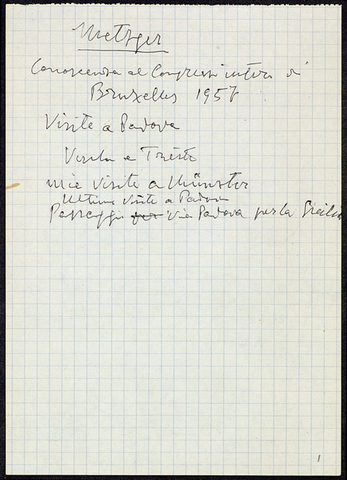 Metzger
Conoscenza al Congresso intern di
Bruxelles 1957
Visite a Padova
Visita a Trieste
mie visite a Münster
Ultima visita a Padova
Passaggio per via Padova per la Sicilia
1